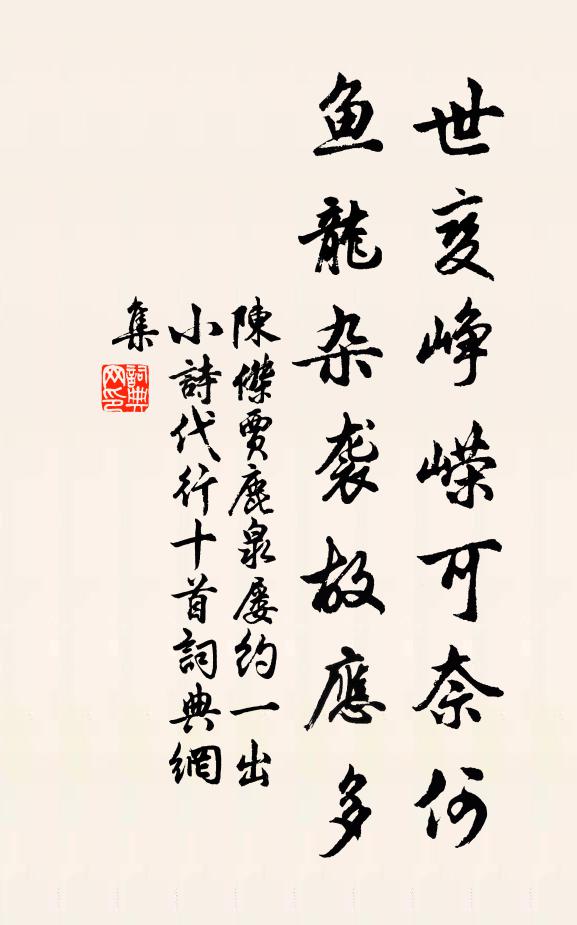 世变峥嵘可奈何
鱼龍杂袭故應多
陳傑賈鹿泉屡约一出
小詩代行十首詞典網
集
詞典
网印